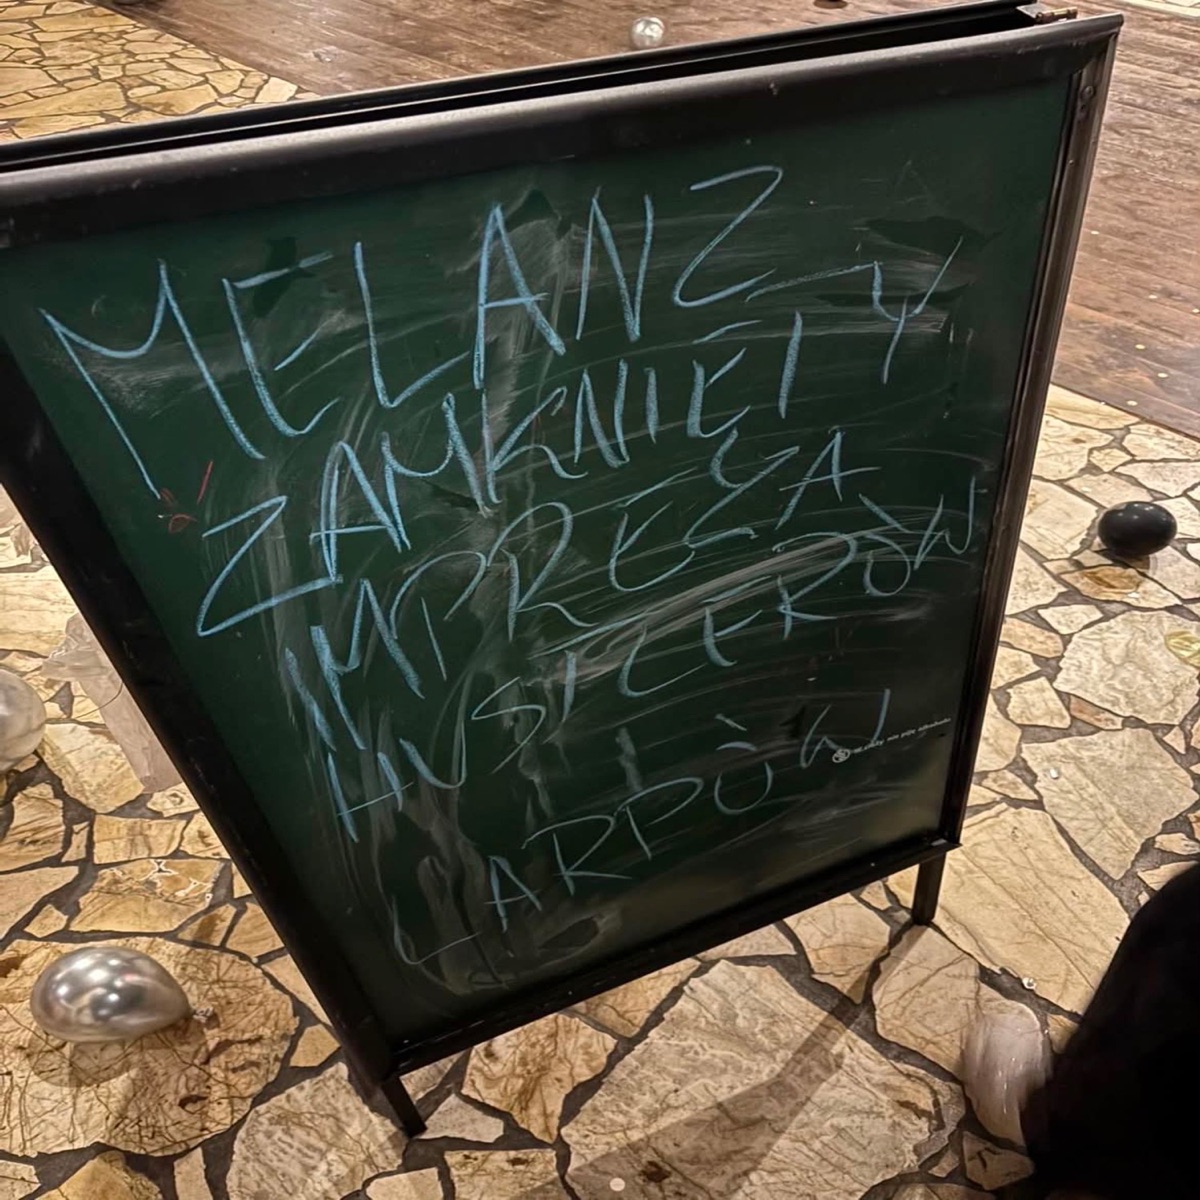 MELANŻ
ZAMKNIĘTY
IMPREZA
HUSTLERÓW
LARPÓW